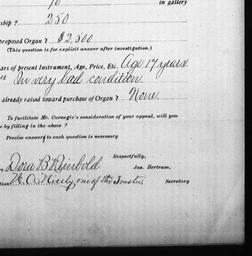 10 in gallery
ship ? 250
proposed Organ ? $2,500
(This question is for explicit answer after investigation.)
ars of present Instrument, Age, Price, Etc. Age 17 years
In very bad condition
already raised toward purchase of Organ ? None.
To facilitate Mr. Carnegie's consideration of your appeal, will you
by filling in the above ?
Precise answer to each question is necessary
Respectfully,
Dora B Jas. Bertram,
one of the Trustees Secretary